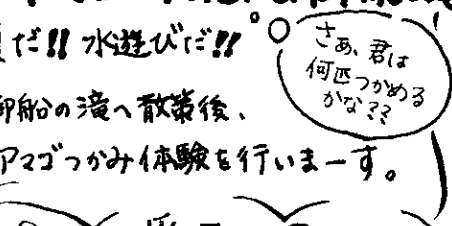 だ!! 水遊びだ!!
さあ、君は
何匹つかめる
かな??
御船の滝へ散策後、
アマゴつかみ体験を行いまーす。